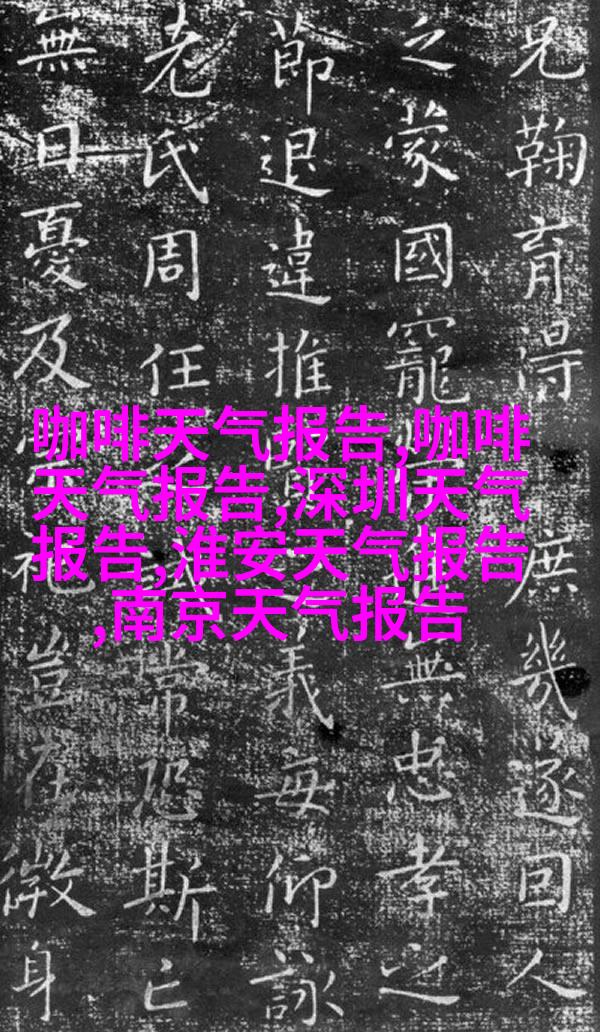 兄鞠育得庶幾遂因人
之蒙國寵無忠孝之
節退違推義每仰詠
老氏周任常恐斯亡
無日憂及祀豈在微身
咖啡天气报告,咖啡
天气报告,深圳天气
报告,淮安天气报告
,南京天气报告